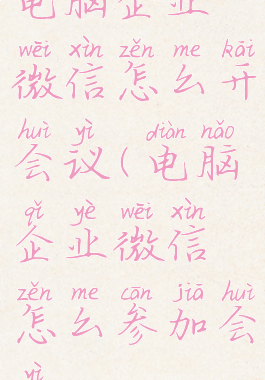 电脑企业
wēi xìn zěn me kāi
微信怎么开
huì yì diàn nǎo
会议(电脑
qǐ yè wēi xìn
企业微信
zěn me cān jiā huì
怎么参加会
yì